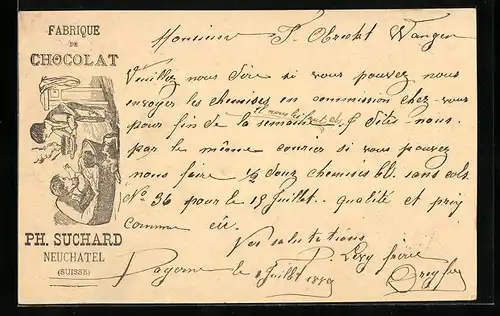 FABRIQUE
DE
CHOCOLAT
PH. SUCHARD
NEUCHATEL
(SUISSE)
Monsieur J. Obrecht Wangen
Veuillez nous dire si vous pouvez nous
envoyer les chemises en commission chez-vous
pour fin de la semaine. & dites-nous
par le même courier si vous pouvez
nous faire ½ douz chemises bl. sans cols
No 36 pour le 15 Juillet. qualité et prix
comme
Vos salutations
P. Lévy frère
Payerne le Juillet 1889 Dreyfus